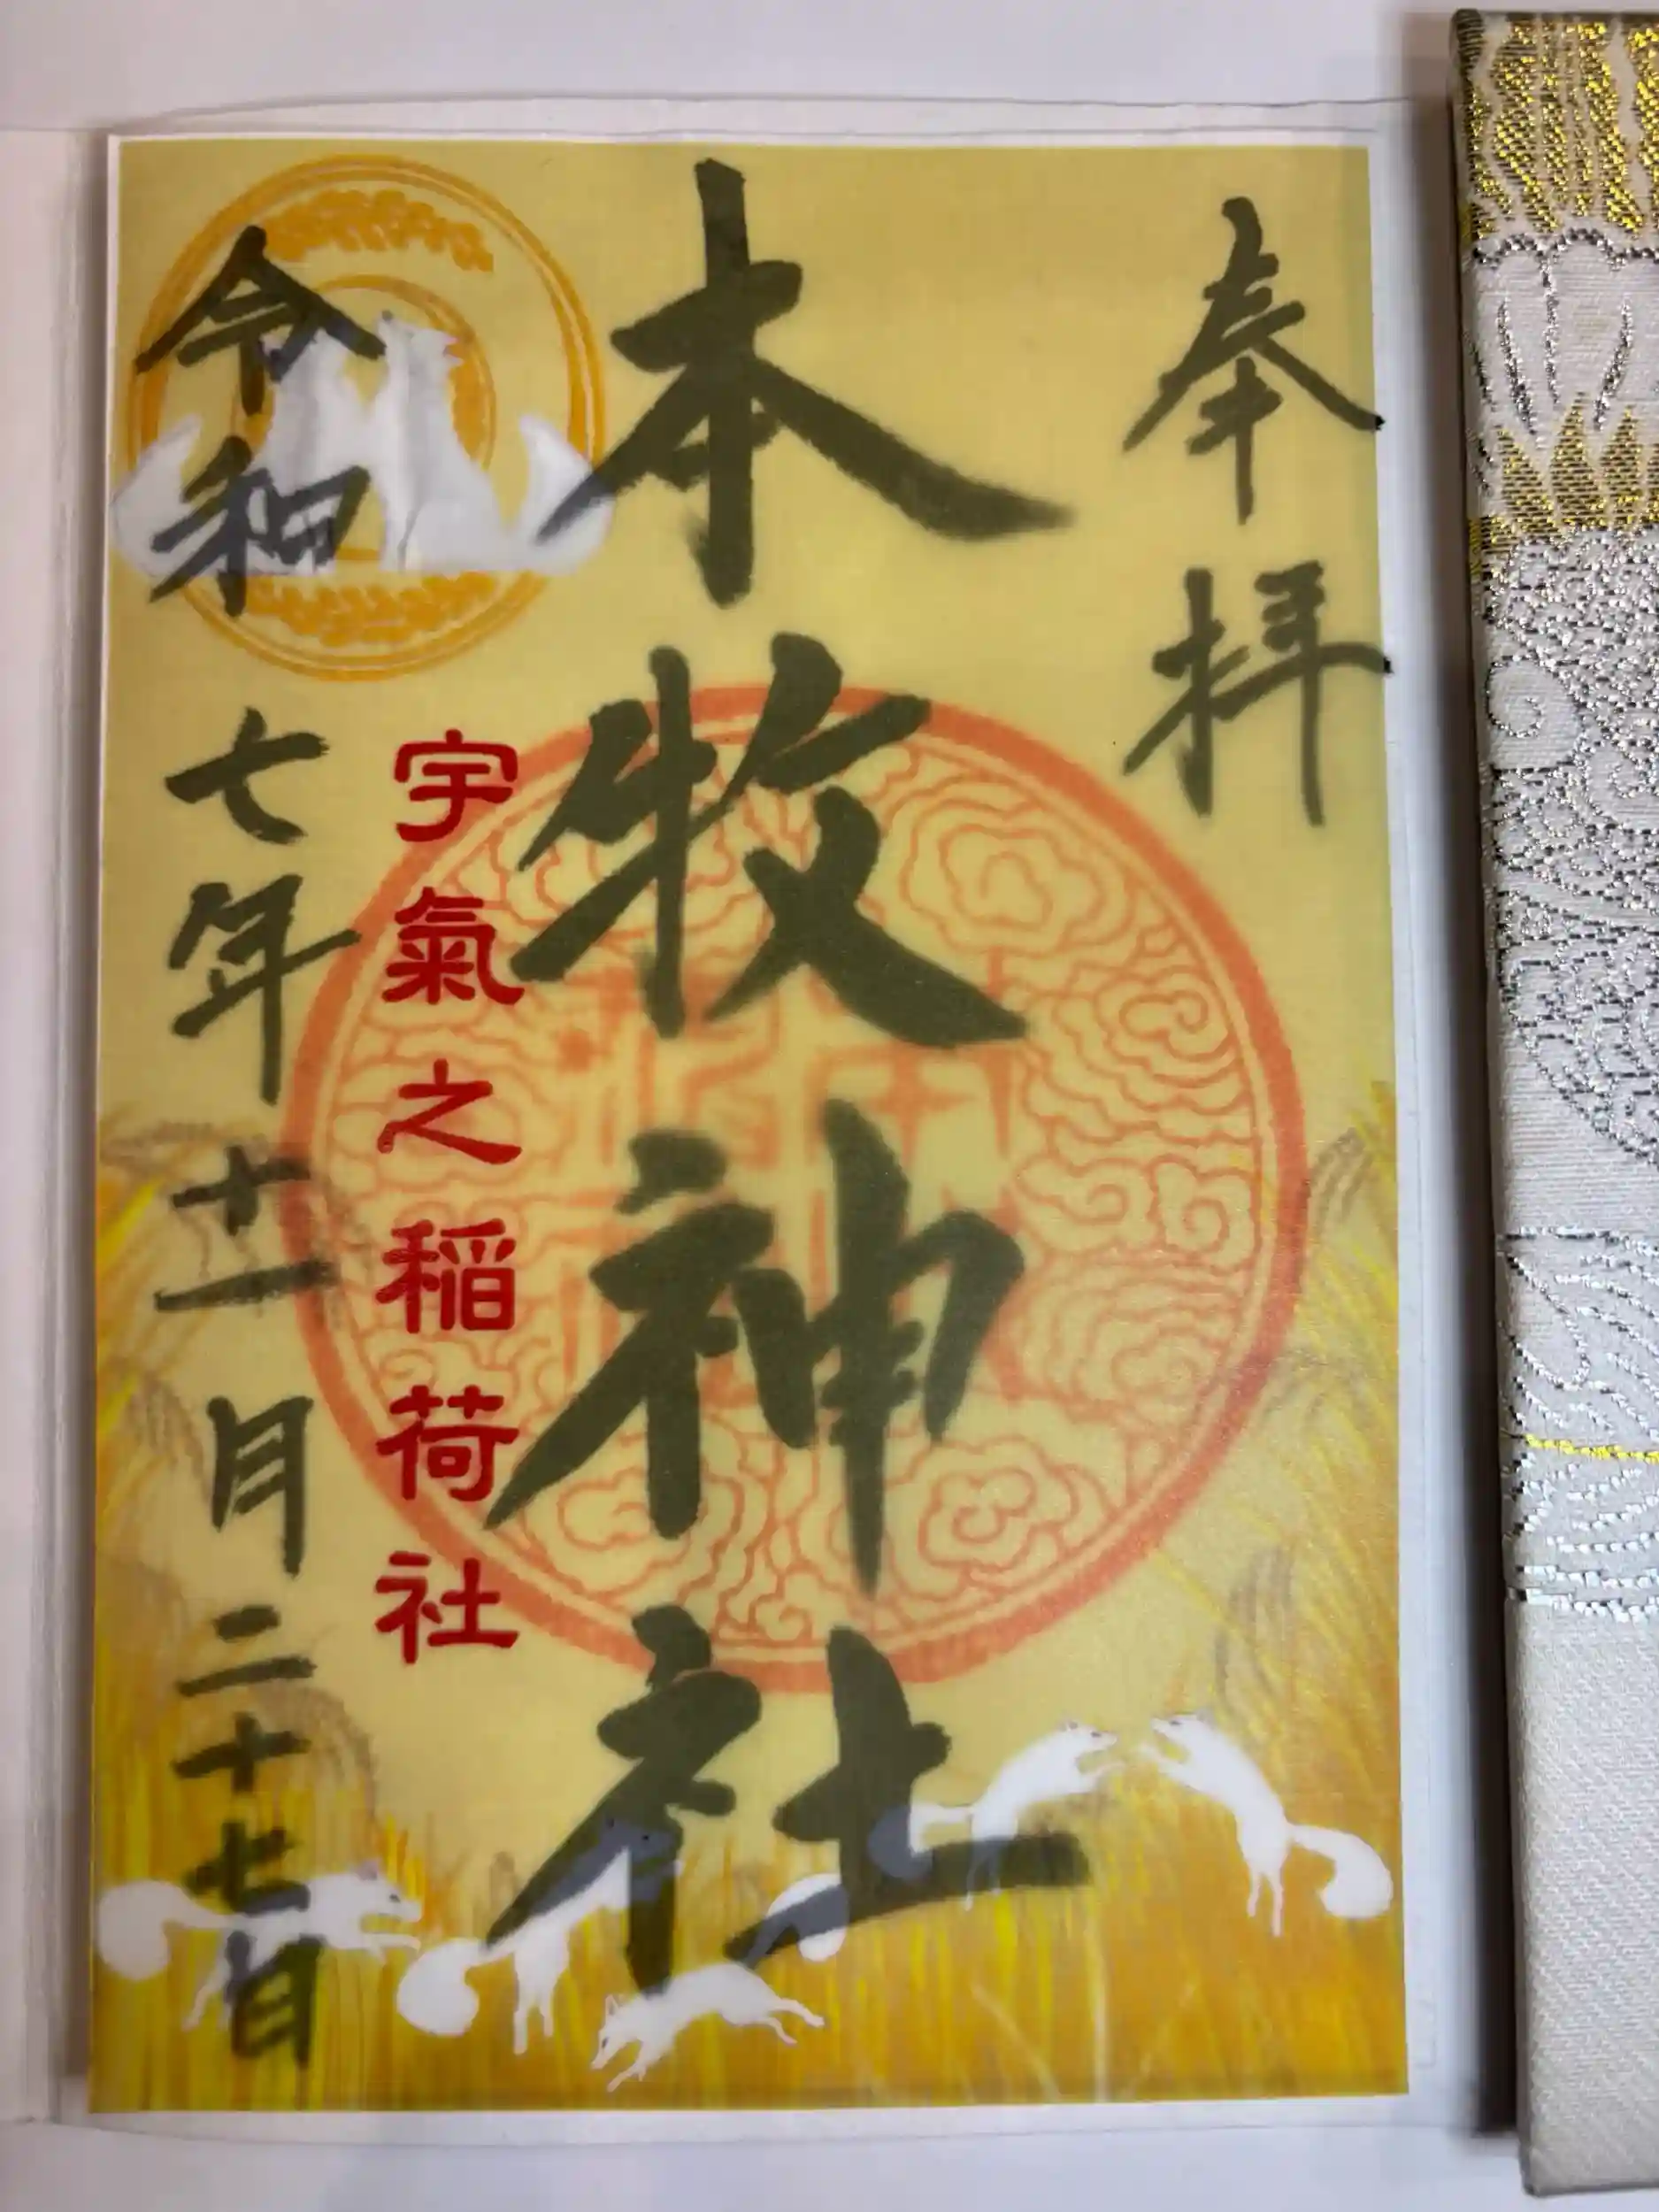 奉拝
本牧神社
宇氣之稲荷社
令和七年十一月二十七日